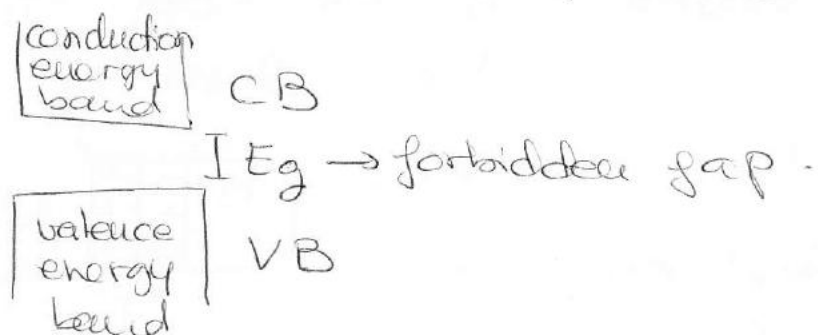 conduction
energy
band
CB
I Eg → forbidden gap.
valence
energy
band
VB